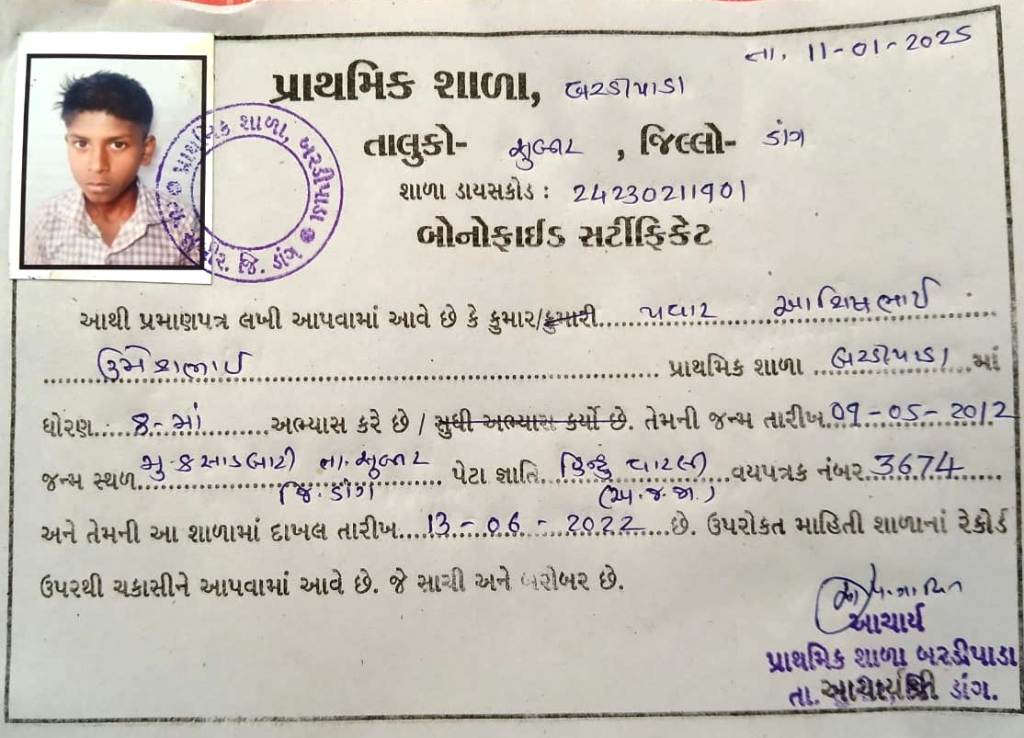 તા. 11-01-2025
પ્રાથમિક શાળા, બરડીપાડા
તાલુકો- સુબીર , જિલ્લો- ડાંગ
શાળા ડાયસકોડ : 24230211901
બોનોફાઈડ સર્ટીફિકેટ
પ્રાથમિક શાળા, બરડીપાડા
તા. સુબીર. જિ. ડાંગ
આથી પ્રમાણપત્ર લખી આપવામાં આવે છે કે કુમાર/કુમારી પવાર આશિષભાઈ
ઉમેશભાઈ પ્રાથમિક શાળા બરડીપાડા માં
ધોરણ 8-માં અભ્યાસ કરે છે / સુધી અભ્યાસ કર્યો છે. તેમની જન્મ તારીખ 09-05-2012
જન્મ સ્થળ મુ. કસાડબારી તા. સુબીર પેટા જ્ઞાતિ હિન્દુ વારલી વયપત્રક નંબર 3674
જિ. ડાંગ (અ.જ.જા.)
અને તેમની આ શાળામાં દાખલ તારીખ 13-06-2022 છે. ઉપરોકત માહિતી શાળાનાં રેકોર્ડ
ઉપરથી ચકાસીને આપવામાં આવે છે. જે સાચી અને બરોબર છે.
આચાર્ય
પ્રાથમિક શાળા બરડીપાડા
તા. આચાર્યશ્રી ડાંગ.